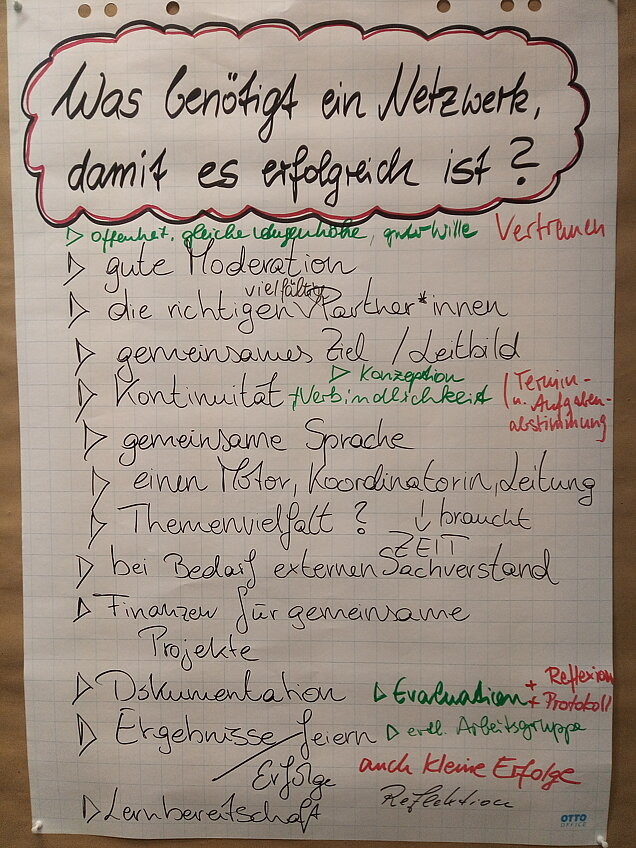 Was benötigt ein Netzwerk,
damit es erfolgreich ist?
▷ Offenheit, gleiche Augenhöhe, guter Wille Vertrauen
▷ gute Moderation
vielfältige
▷ die richtigen Partner*innen
▷ gemeinsames Ziel / Leitbild
▷ Konzeption
▷ Kontinuität + Verbindlichkeit
/ Termin-
u. Aufgaben-
abstimmung
▷ gemeinsame Sprache
▷ einen Motor, Koordinatorin, Leitung
▷ Themenvielfalt ? ↓ braucht
ZEIT
▷ bei Bedarf externen Sachverstand
▷ Finanzen für gemeinsame
Projekte
▷ Dokumentation ▷ Evaluation + Reflexion
+ Protokoll
▷ Ergebnisse feiern ▷ evtl. Arbeitsgruppe
/ Erfolge
auch kleine Erfolge
Reflektion
▷ Lernbereitschaft
OTTO
OFFICE